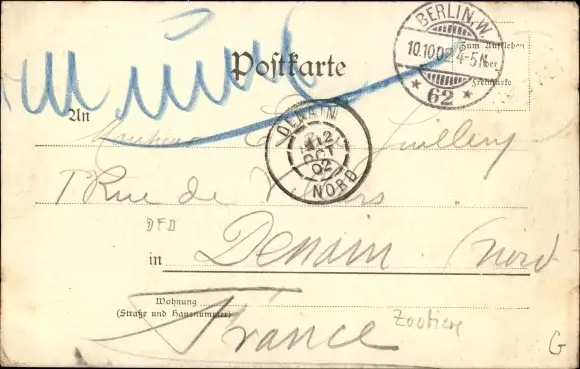 BERLIN. W.
10.10.02 4-5N.
* 62 *
Zum Aufkleben
der
Freimarke
Postkarte
An
DENAIN
12
OCT
02
NORD
Rue de
DFD
in Denain (Nord
Wohnung
(Straße und Hausnummer)
France
Zootiere
G